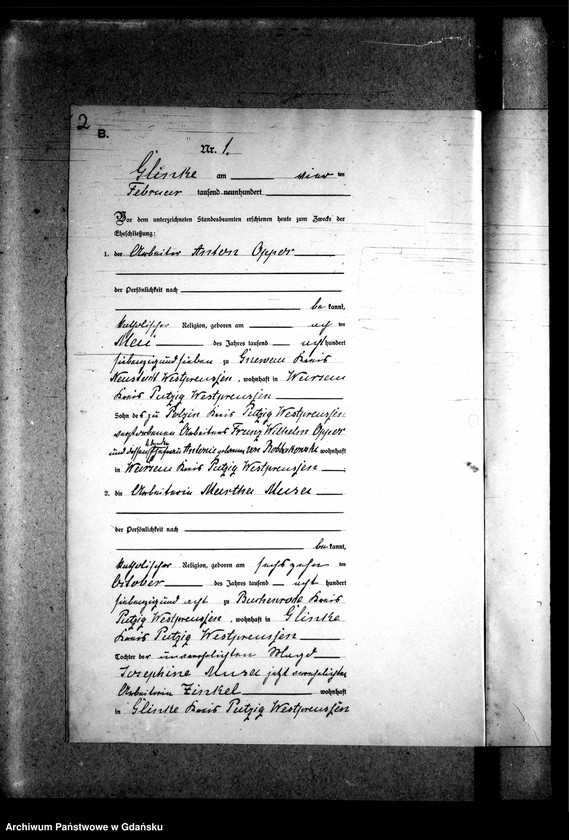 2
B.
Nr. 1.
Glinke am vier ten
Februar tausend neunhundert
Vor dem unterzeichneten Standesbeamten erschienen heute zum Zwecke der
Eheschließung:
1. der Arbeiter Anton Opper
der Persönlichkeit nach
be kannt,
katholischer Religion, geboren am ach ten
Mai des Jahres tausend acht hundert
siebenzig und sieben zu Gnewau Kreis
Neustadt Westpreussen, wohnhaft in
Kreis Putzig Westpreussen
Sohn des zu Polzin Kreis Putzig Westpreussen
verstorbenen Arbeiters Franz Wilhelm Opper
und dessen Ehefrau Antonie geborenen von wohnhaft
in Kreis Putzig Westpreussen ;
2. die Arbeiterin Martha
der Persönlichkeit nach
be kannt,
katholischer Religion, geboren am sechszehn ten
October des Jahres tausend acht hundert
siebenzig und acht zu Buchenrode Kreis
Putzig Westpreussen, wohnhaft in Glinke
Kreis Putzig Westpreussen
Tochter der unverehelichten Magd
Josephine jetzt verehelichten
Arbeiterin Zinkel wohnhaft
in Glinke Kreis Putzig Westpreussen
Archiwum Państwowe w Gdańsku